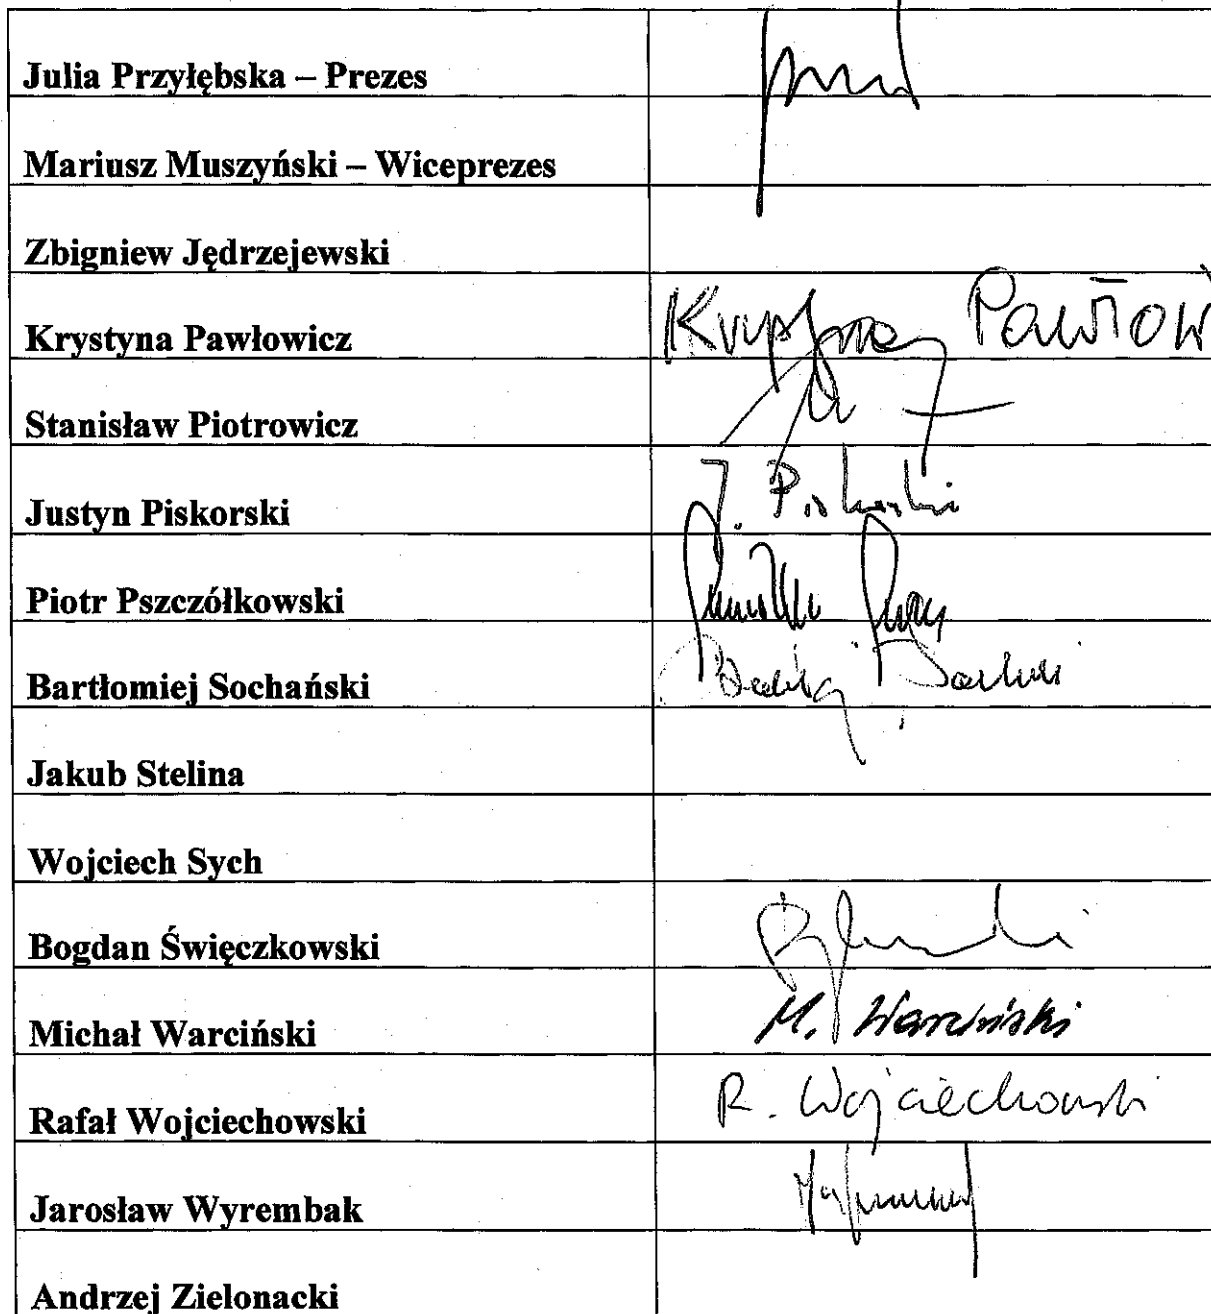 Julia Przyłębska – Prezes
Mariusz Muszyński – Wiceprezes
Zbigniew Jędrzejewski
Krystyna Pawłowicz Krystyna Pawłow
Stanisław Piotrowicz
Justyn Piskorski J. Piskorski
Piotr Pszczółkowski
Bartłomiej Sochański
Jakub Stelina
Wojciech Sych
Bogdan Święczkowski
Michał Warciński M. Warciński
Rafał Wojciechowski R. Wojciechowski
Jarosław Wyrembak
Andrzej Zielonacki